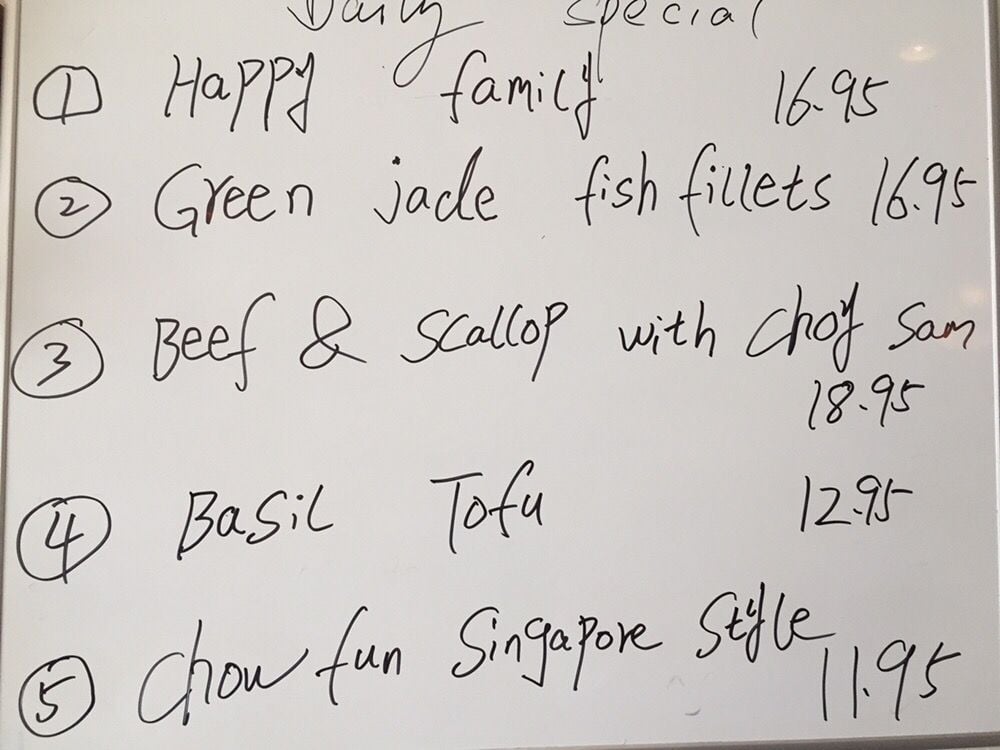 Daily special
① Happy family 16.95
② Green jade fish fillets 16.95
③ Beef & scallop with choy sam
18.95
④ Basil Tofu 12.95
⑤ chow fun Singapore style 11.95